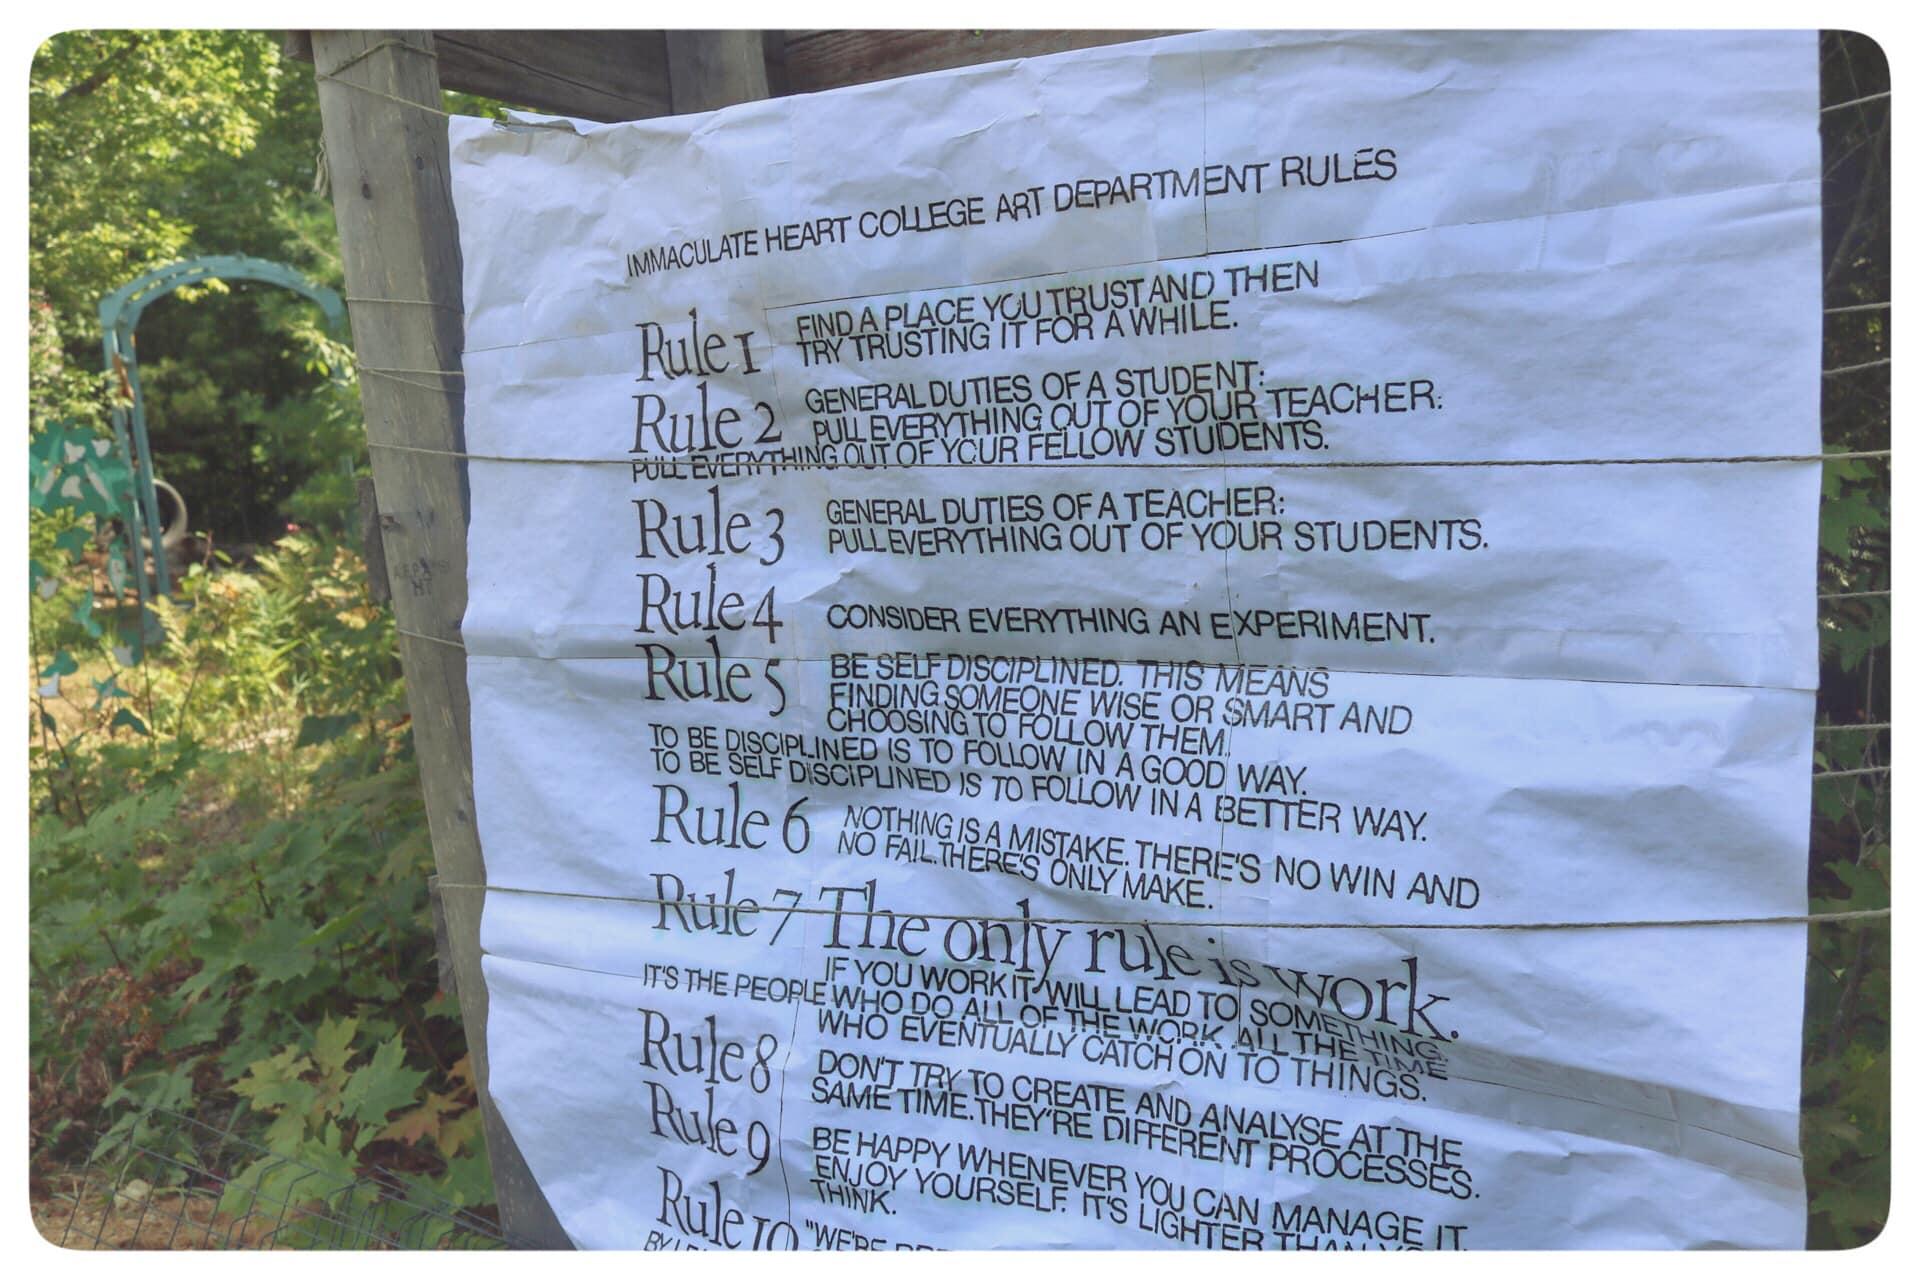 IMMACULATE HEART COLLEGE ART DEPARTMENT RULES
Rule 1 FIND A PLACE YOU TRUST AND THEN
TRY TRUSTING IT FOR A WHILE.
Rule 2 GENERAL DUTIES OF A STUDENT:
PULL EVERYTHING OUT OF YOUR TEACHER:
PULL EVERYTHING OUT OF YOUR FELLOW STUDENTS.
Rule 3 GENERAL DUTIES OF A TEACHER:
PULL EVERYTHING OUT OF YOUR STUDENTS.
Rule 4 CONSIDER EVERYTHING AN EXPERIMENT.
Rule 5 BE SELF DISCIPLINED. THIS MEANS
FINDING SOMEONE WISE OR SMART AND
CHOOSING TO FOLLOW THEM.
TO BE DISCIPLINED IS TO FOLLOW IN A GOOD WAY.
TO BE SELF DISCIPLINED IS TO FOLLOW IN A BETTER WAY.
Rule 6 NOTHING IS A MISTAKE. THERE'S NO WIN AND
NO FAIL. THERE'S ONLY MAKE.
Rule 7 The only rule is work.
IF YOU WORK IT WILL LEAD TO SOMETHING.
IT'S THE PEOPLE WHO DO ALL OF THE WORK ALL THE TIME
WHO EVENTUALLY CATCH ON TO THINGS.
Rule 8 DON'T TRY TO CREATE AND ANALYSE AT THE
SAME TIME. THEY'RE DIFFERENT PROCESSES.
Rule 9 BE HAPPY WHENEVER YOU CAN MANAGE IT.
ENJOY YOURSELF. IT'S LIGHTER THAN
THINK.
Rule 10 "WE'RE